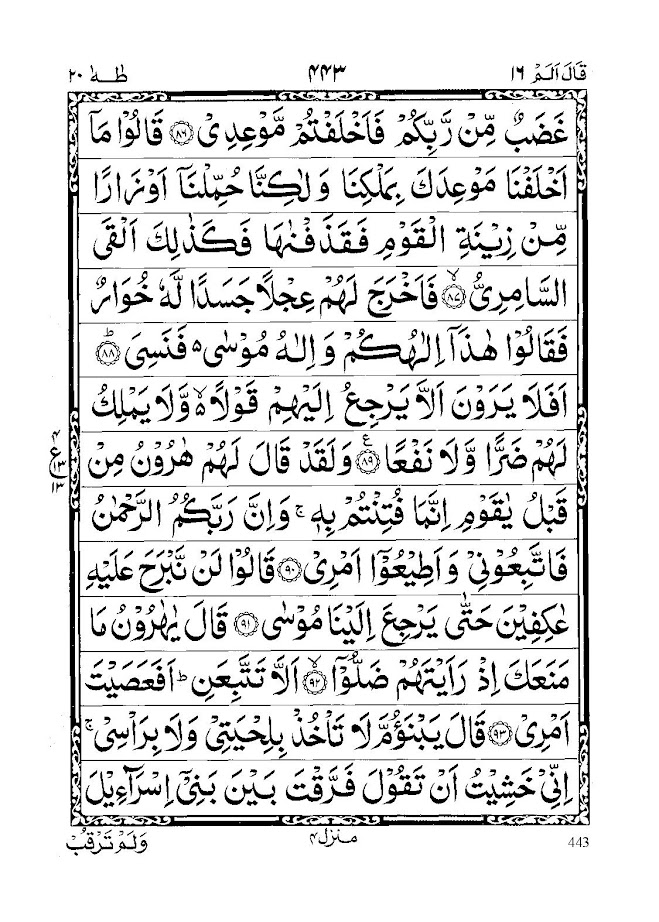 قَالَ اَلَمْ ١٦
٤٤٣
طٰهٰ ٢٠
غَضَبٌ مِّنْ رَّبِّكُمْ فَاَخْلَفْتُمْ مَّوْعِدِىْ ۝٨٦ قَالُوْا مَآ
اَخْلَفْنَا مَوْعِدَكَ بِمَلْكِنَا وَلٰكِنَّا حُمِّلْنَآ اَوْزَارًا
مِّنْ زِيْنَةِ الْقَوْمِ فَقَذَفْنٰهَا فَكَذٰلِكَ اَلْقَى
السَّامِرِىُّ ۝٨٧ۙ فَاَخْرَجَ لَهُمْ عِجْلًا جَسَدًا لَّهٗ خُوَارٌ
فَقَالُوْا هٰذَآ اِلٰهُكُمْ وَاِلٰهُ مُوْسٰى ە فَنَسِىَ ۝٨٨ؕ
اَفَلَا يَرَوْنَ اَلَّا يَرْجِعُ اِلَيْهِمْ قَوْلًا ە ۙ وَّلَا يَمْلِكُ
لَهُمْ ضَرًّا وَّلَا نَفْعًا ۝٨٩ع وَلَقَدْ قَالَ لَهُمْ هٰرُوْنُ مِنْ
٤
ع ١٣
١٣
قَبْلُ يٰقَوْمِ اِنَّمَا فُتِنْتُمْ بِهٖ ۚ وَاِنَّ رَبَّكُمُ الرَّحْمٰنُ
فَاتَّبِعُوْنِىْ وَاَطِيْعُوْٓا اَمْرِىْ ۝٩٠ قَالُوْا لَنْ نَّبْرَحَ عَلَيْهِ
عٰكِفِيْنَ حَتّٰى يَرْجِعَ اِلَيْنَا مُوْسٰى ۝٩١ قَالَ يٰهٰرُوْنُ مَا
مَنَعَكَ اِذْ رَاَيْتَهُمْ ضَلُّوْٓا ۝٩٢ۙ اَلَّا تَتَّبِعَنِ ؕ اَفَعَصَيْتَ
اَمْرِىْ ۝٩٣ قَالَ يَبْنَؤُمَّ لَا تَاْخُذْ بِلِحْيَتِىْ وَلَا بِرَاْسِىْ ۚ
اِنِّىْ خَشِيْتُ اَنْ تَقُوْلَ فَرَّقْتَ بَيْنَ بَنِىْٓ اِسْرَآءِيْلَ
443
منزل ٤
وَلَمْ تَرْقُبْ